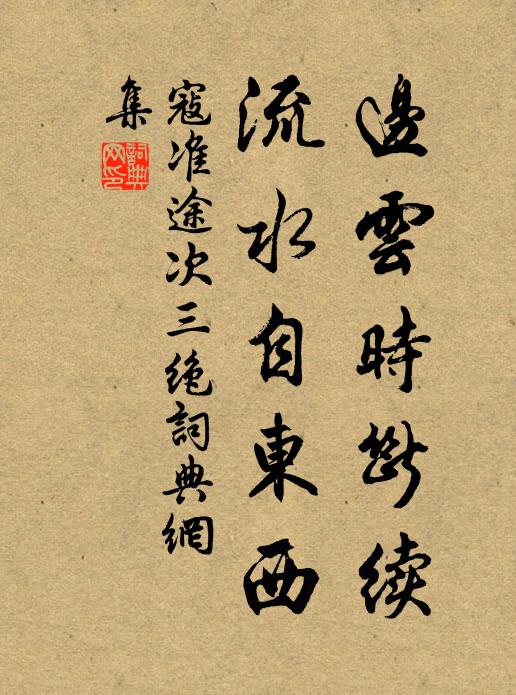 邊雲時斷續
流水自東西
寇准途次三绝詞典網
集
詞典
网印